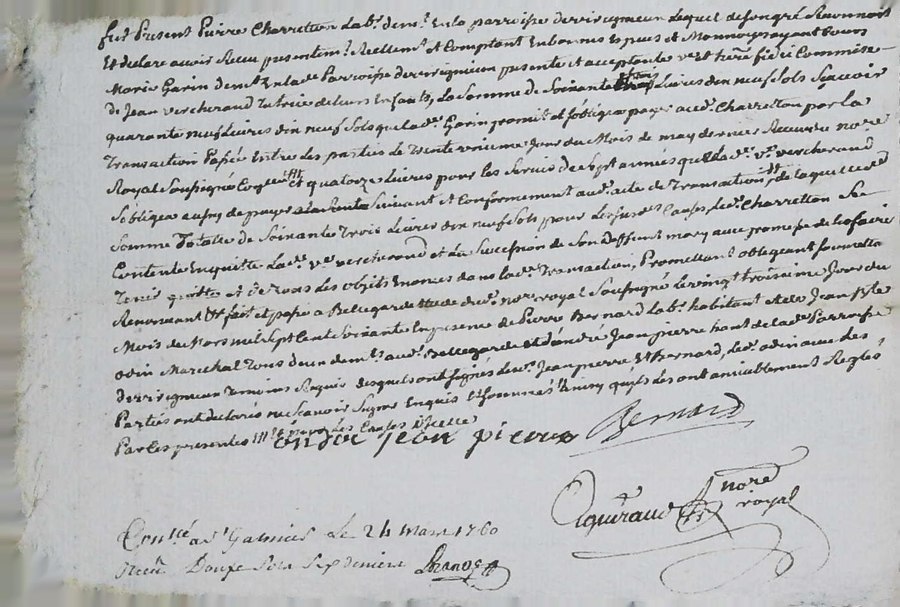 fut Present Pierre Charretton Lab.r dem.t En la parroisse de virignieu Lequel de son gré Reconnoit
Et declare avoir Receu presentem.t Reellem.t et Comptant En bonnes Especes et Monnoys ayant Cours
Marie Garin dem.t En lad.e Parroisse de virignieu presente et acceptante v.ve et
de Jean vercherand Tutrice de leurs Enfants, La somme de Soixante trois Livres dix neuf sols Sçavoir
quarante neuf Livres dix neuf Sols que lad.e Garin promit et s'obligea payer aud.t Charretton par la
Transaction Passée Entre Les parties Le Trente unieme Jour du Mois de may dernier Receue no.re
Royal Soussigné et quatorze Livres pour les de Sept années que lad.e v.ve vercherand
S'obligea aussy de payer suivant et Conformement aud.t acte de Transaction, de laquelle
Somme Totalle de Soixante Trois Livres dix neuf sols pour Les susd.es Causes, Led.t Charretton Se
Contente En quitte Lad.e v.ve vercherand et la Succession de Son deffunt mary avec promesse de les faire
Tenir quitte et de tous des objets Enoncés dans lad.e Transaction, Promettant obligeant soumettant
Renonceant fait et passé a Bellegarde Etude du no.re royal Soussigné Le vingt troisieme Jour du
Mois de Mars mil Sept Cent Soixante En presence de Pierre Bernard Lab.r habitant et de Jean
odin Marechal Tous deux dem.ts aud.t Bellegarde et d'andré Jean pierre hant de lad.e Parroisse
de virignieu Temoins Requis Lesquels ont signés Led.t Jean pierre Et Bernard, Led.t odin avec Les
Parties ont declarés ne Scavoir Signer Enquis Et sommés qu'ils Les ont amiablement Reglés
Par Les presentes Les Causes d'Icelle
andre jean pierre Bernard
no.re royal
Con.llé a S.t Galmier Le 24 Mars 1760
Receu Douze Sols Six deniers